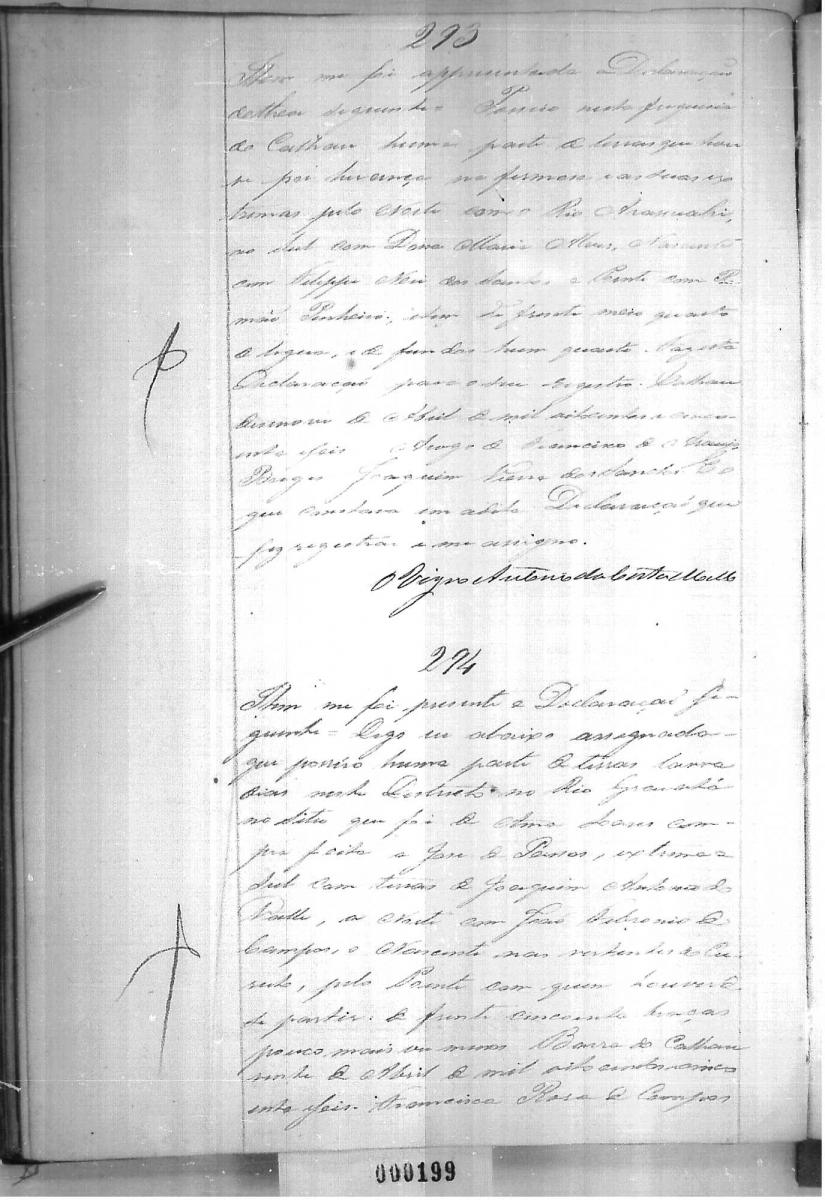 293
Item me foi appresentada a Declaração
do theor seguinte Possuo nesta freguesia
do Calhau huma parte de terras que hou
ve por herança na fermosa e as suas ex
tremas pelo Norte com o Rio Arassuahi,
ao Sul com Dona Maria Alves, Nascente
com Felippe Neri dos Santos e Poente com
Pinheiro, tem de frente meio quarto
de legua, e de fundos hum quarto. Faço esta
Declaração para o seu registro. Calhau
desenove de Abril de mil oitocentos e cinco-
enta e seis Arogo de Francisco de Araujo
Borges Joaquim Vieira dos Santos. E o
que constava em a dita Declaração que
fiz registrar e me assigno.
O Vigro Antonio da Costa Mello
294
Item me foi presente a Declaração se-
guinte = Digo eu abaixo assegnada
que possuo huma parte de terras lavra
dias neste Districto no Rio Gravatá
no sitio que foi de Anna Soares com-
pra feita a José de Passos, extrema a
Sul com terras de Joaquim Antonio do
Valle, a Norte com João Petronio de
Campos, o Nascente nas vertentes do Cu-
ruto, pelo Poente com quem houver de
de partir: de frente cincoenta braças
pouco mais ou menos Barra do Calhau
vinte de Abril de mil oitocentos e cinco
enta e seis. Francisca Rosa de Campos
000199